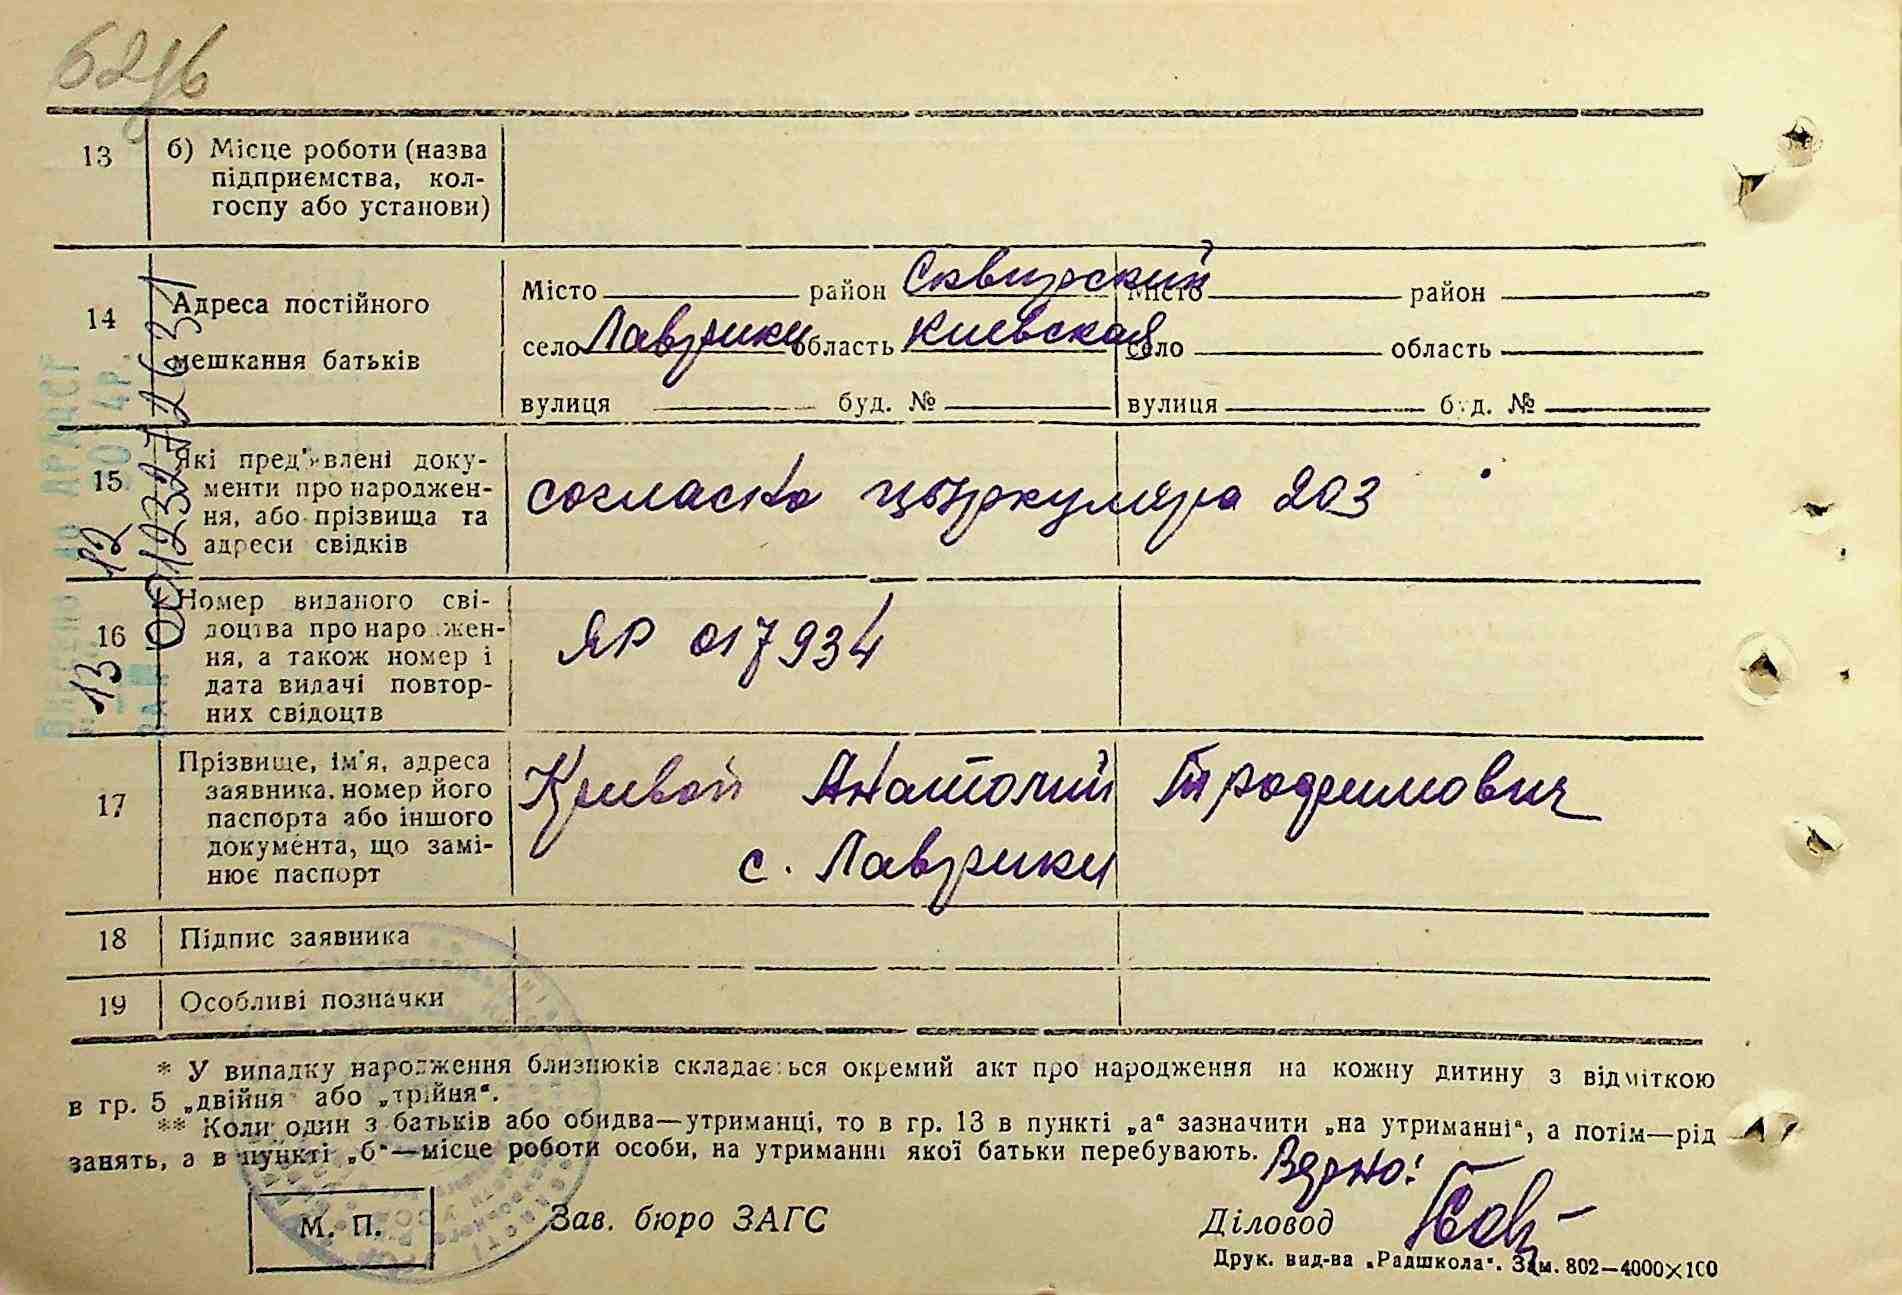 13 б) Місце роботи (назва
підприємства, кол-
госпу або установи)
14 Адреса постійного
мешкання батьків
Місто район Сквирский
село Лаврики область Киевская
вулиця буд. №
Місто район
село область
вулиця буд. №
15 Які пред'явлені доку-
менти про народжен-
ня, або прізвища та
адреси свідків
согласно циркуляра 203
16 Номер виданого сві-
доцтва про народжен-
ня, а також номер і
дата видачі повтор-
них свідоцтв
ЯР 017934
17 Прізвище, ім'я, адреса
заявника, номер його
паспорта або іншого
документа, що замі-
нює паспорт
Кривой Анатолий Трофимович
с. Лаврики
18 Підпис заявника
19 Особливі позначки
* У випадку народження близнюків складається окремий акт про народження на кожну дитину з відміткою
в гр. 5 „двійня“ або „трійня“.
** Коли один з батьків або обидва—утриманці, то в гр. 13 в пункті „а“ зазначити „на утриманні“, а потім—рід
занять, а в пункті „б“—місце роботи особи, на утриманні якої батьки перебувають.
Верно:
М. П. Зав. бюро ЗАГС Діловод
Друк. вид-ва „Радшкола“. Зам. 802—4000×100